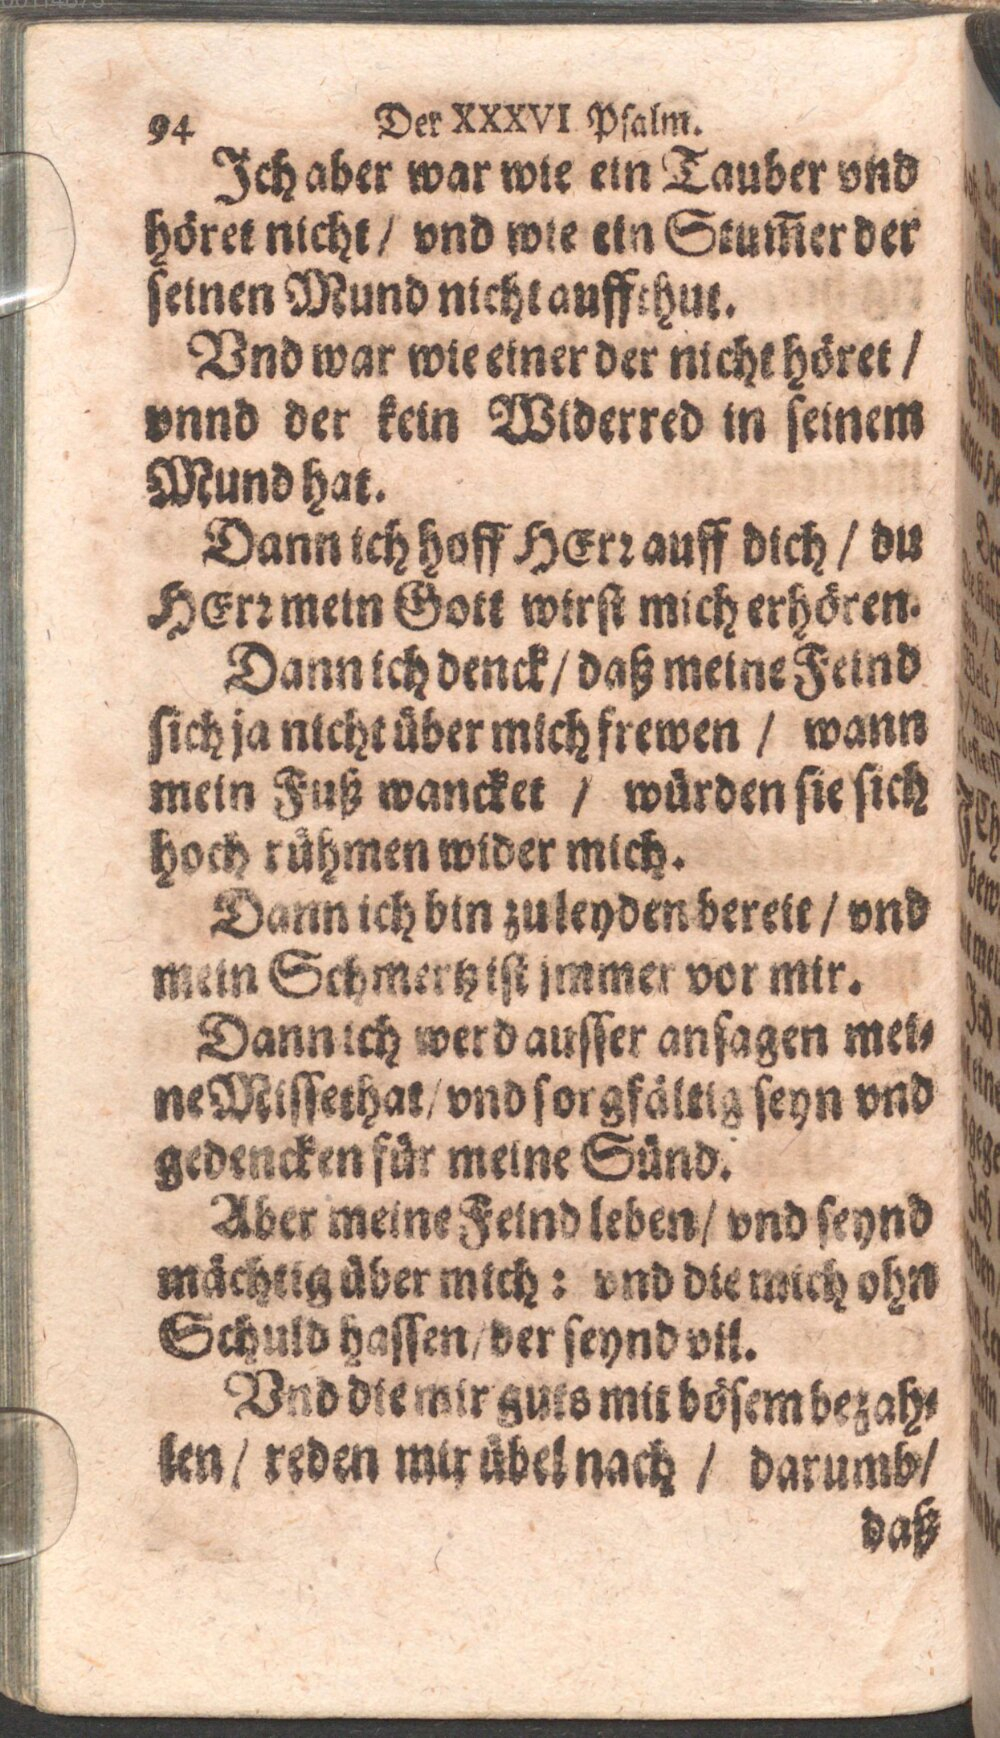 94 Der XXXVI Psalm.
Ich aber war wie ein Tauber vnd
höret nicht / vnd wie ein Stum̃er der
seinen Mund nicht auffthut.
Vnd war wie einer der nicht höret /
vnnd der kein Widerred in seinem
Mund hat.
Dann ich hoff HErꝛ auff dich / du
HErꝛ mein Gott wirst mich erhören.
Dann ich denck / daß meine Feind
sich ja nicht über mich frewen / wann
mein Fuß wancket / würden sie sich
hoch rühmen wider mich.
Dann ich bin zu leyden bereit / vnd
mein Schmertz ist jmmer vor mir.
Dann ich werd ausser ansagen mei-
ne Missethat / vnd sorgfältig seyn vnd
gedencken für meine Sünd.
Aber meine Feind leben / vnd seynd
mächtig über mich : vnd die mich ohn
Schuld hassen / der seynd vil.
Vnd die mir guts mit bösem bezah-
len / reden mir übel nach / darumb /
daß